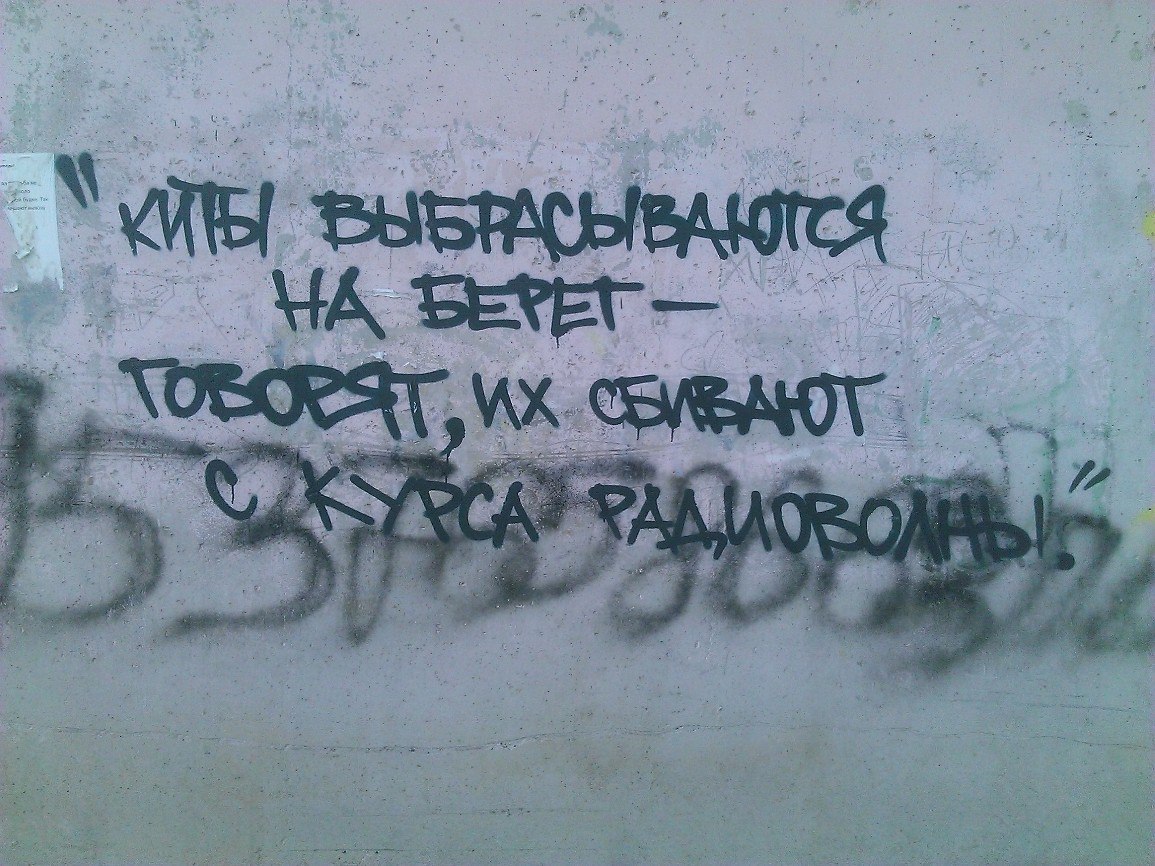 "КИТЫ ВЫБРАСЫВАЮТСЯ
НА БЕРЕГ —
ГОВОРЯТ, ИХ СБИВАЮТ
С КУРСА РАДИОВОЛНЫ."